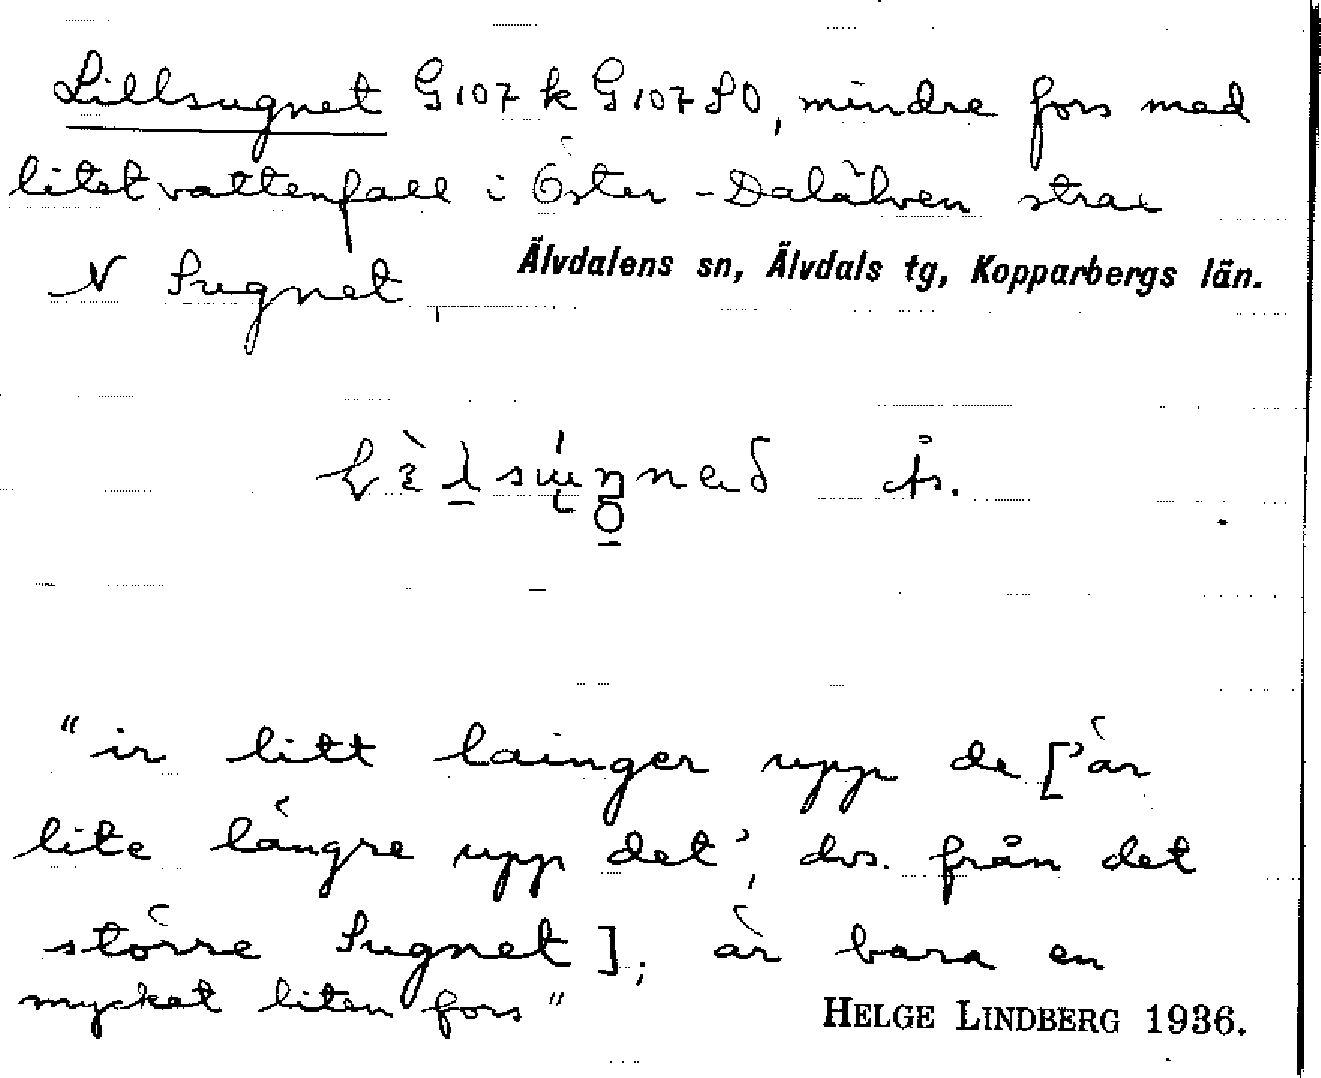 Lillsugnet G107 k G107 SO, mindre fors med
litet vattenfall i Öster-Dalälven strax
N Sugnet,
Älvdalens sn, Älvdals tg, Kopparbergs län.
ås.
"ir litt lainger upp de ['är
lite längre upp det', dvs. från det
större Sugnet]; är bara en
mycket liten fors"
HELGE LINDBERG 1936.